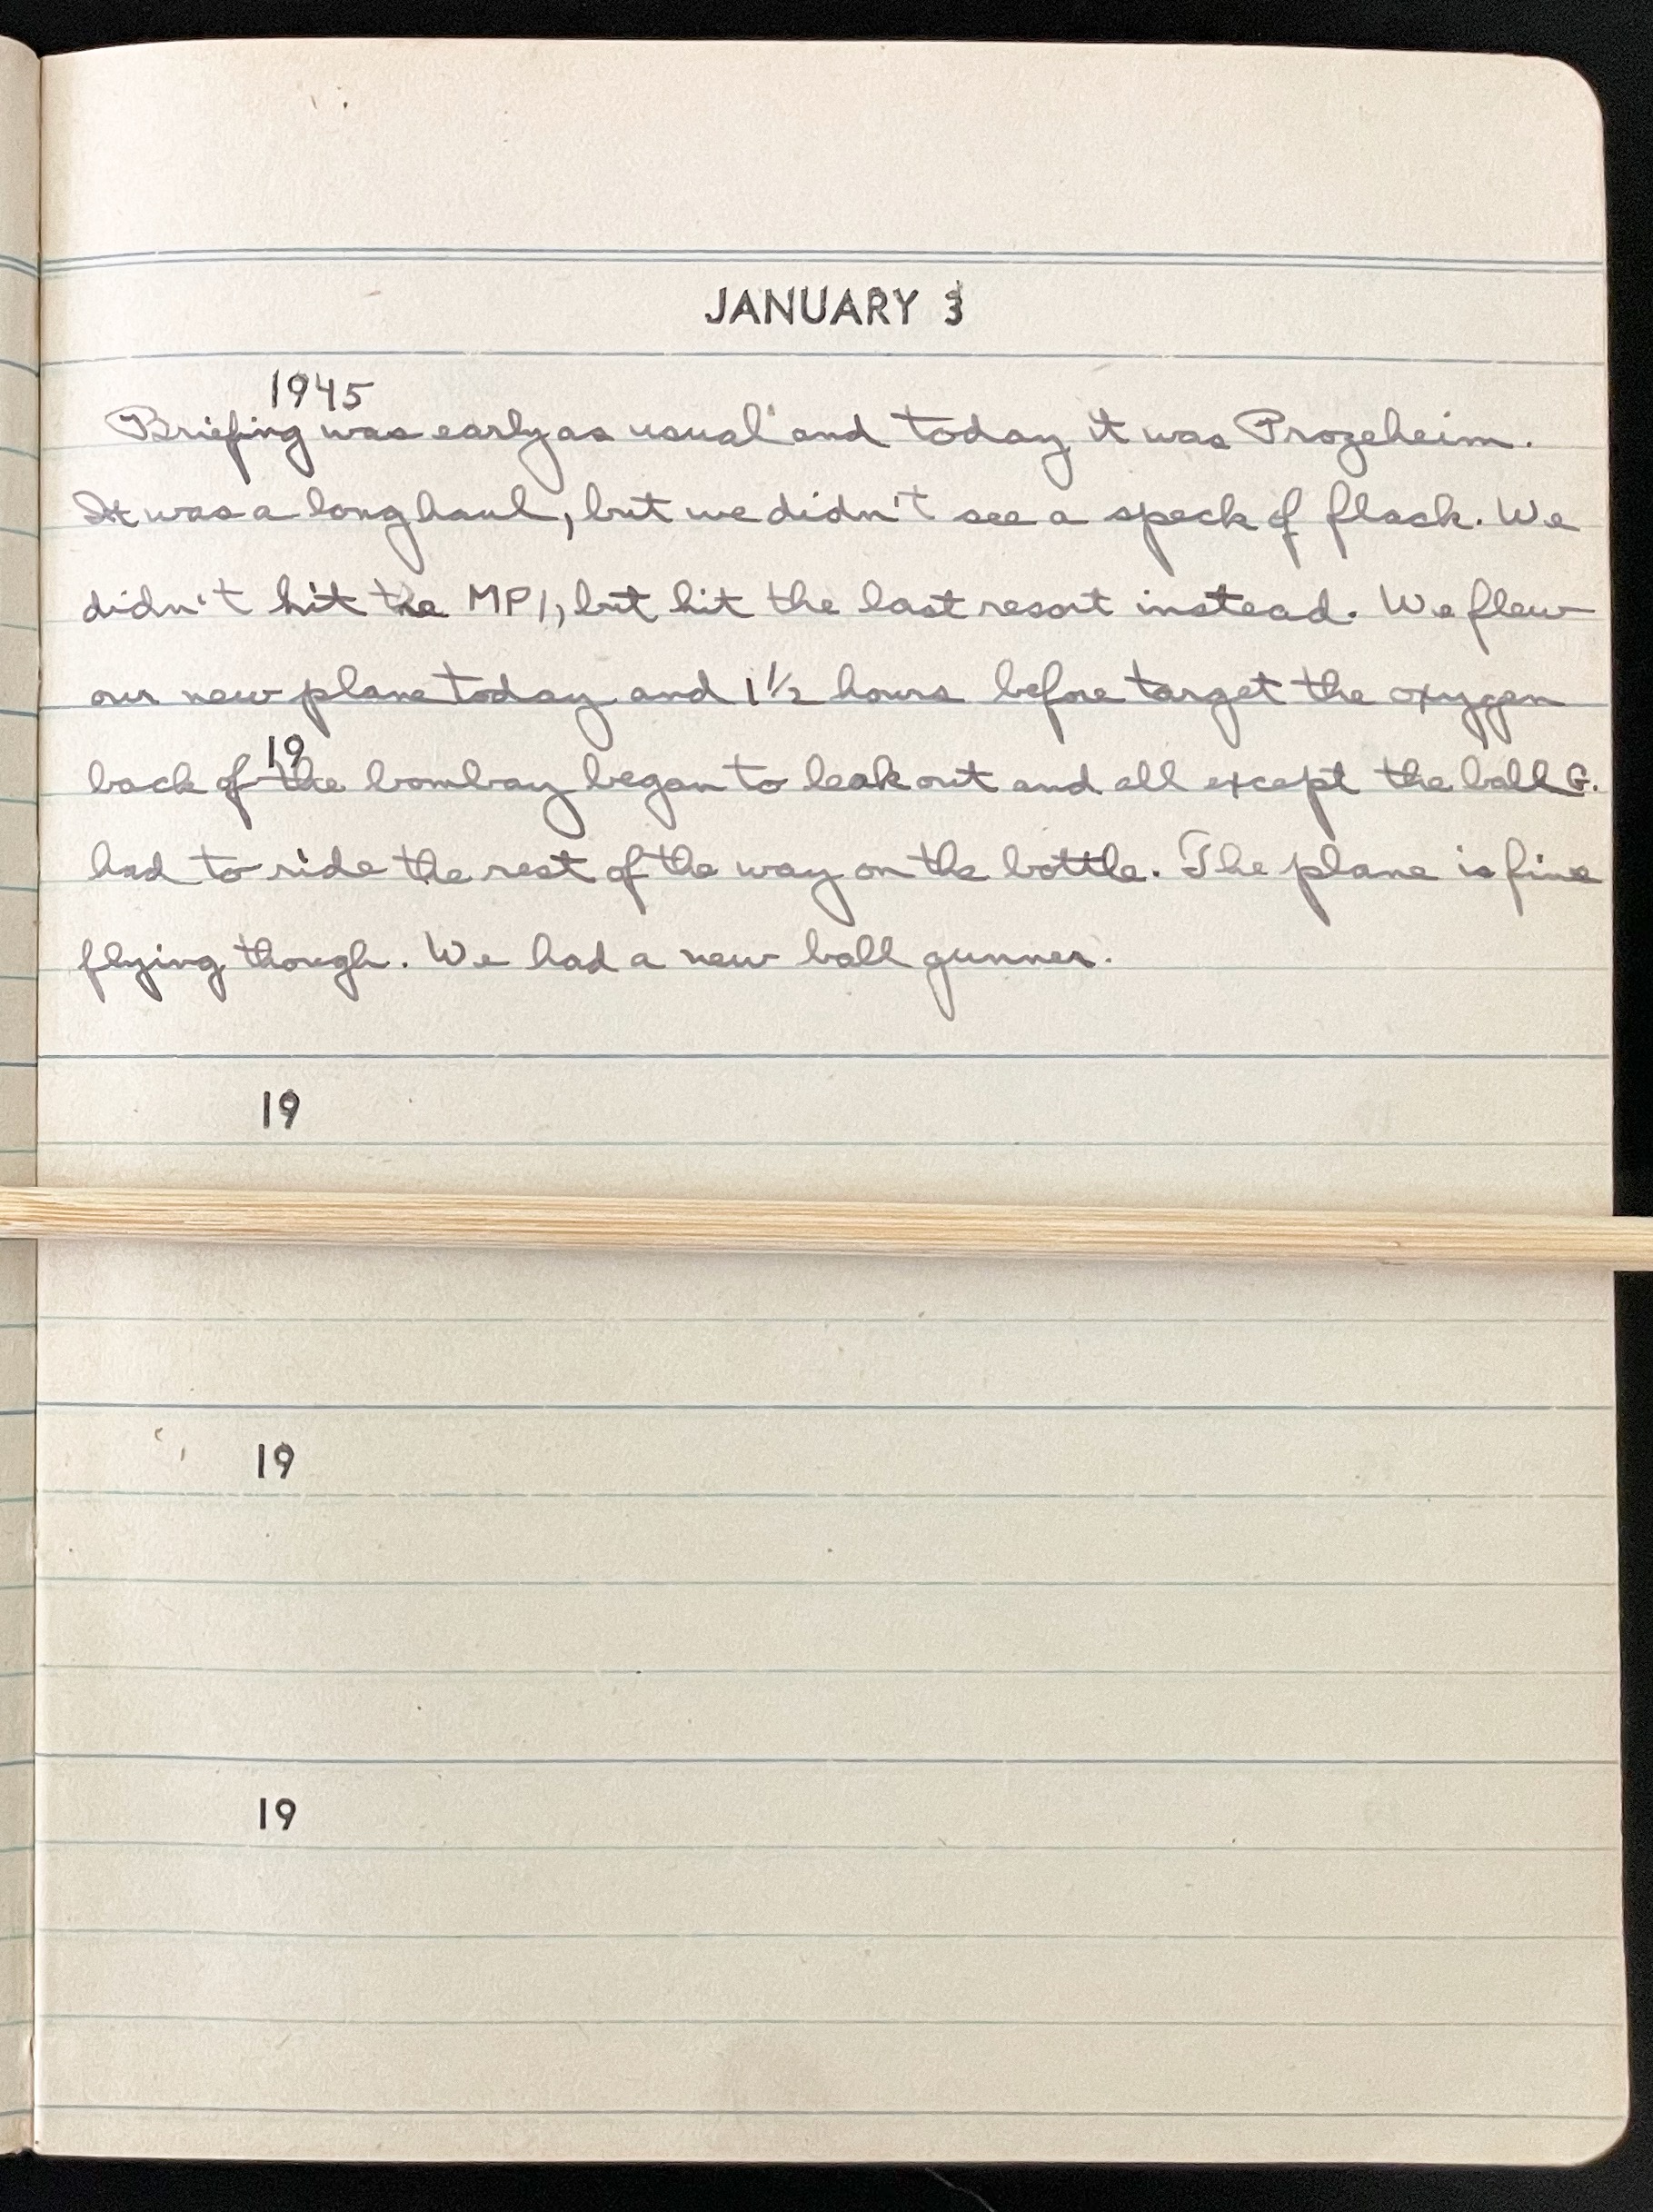 JANUARY 3
1945
Briefing was early as usual and today it was Prozeheim.
It was a long haul, but we didn't see a speck of flack. We
didn't hit the MPI, but hit the last resort instead. We flew
our new plane today and 1 1/2 hours before target the oxygen
19
back of the bombay began to leak out and all except the ball G.
had to ride the rest of the way on the bottle. The plane is fine
flying though. We had a new ball gunner.
19
19
19